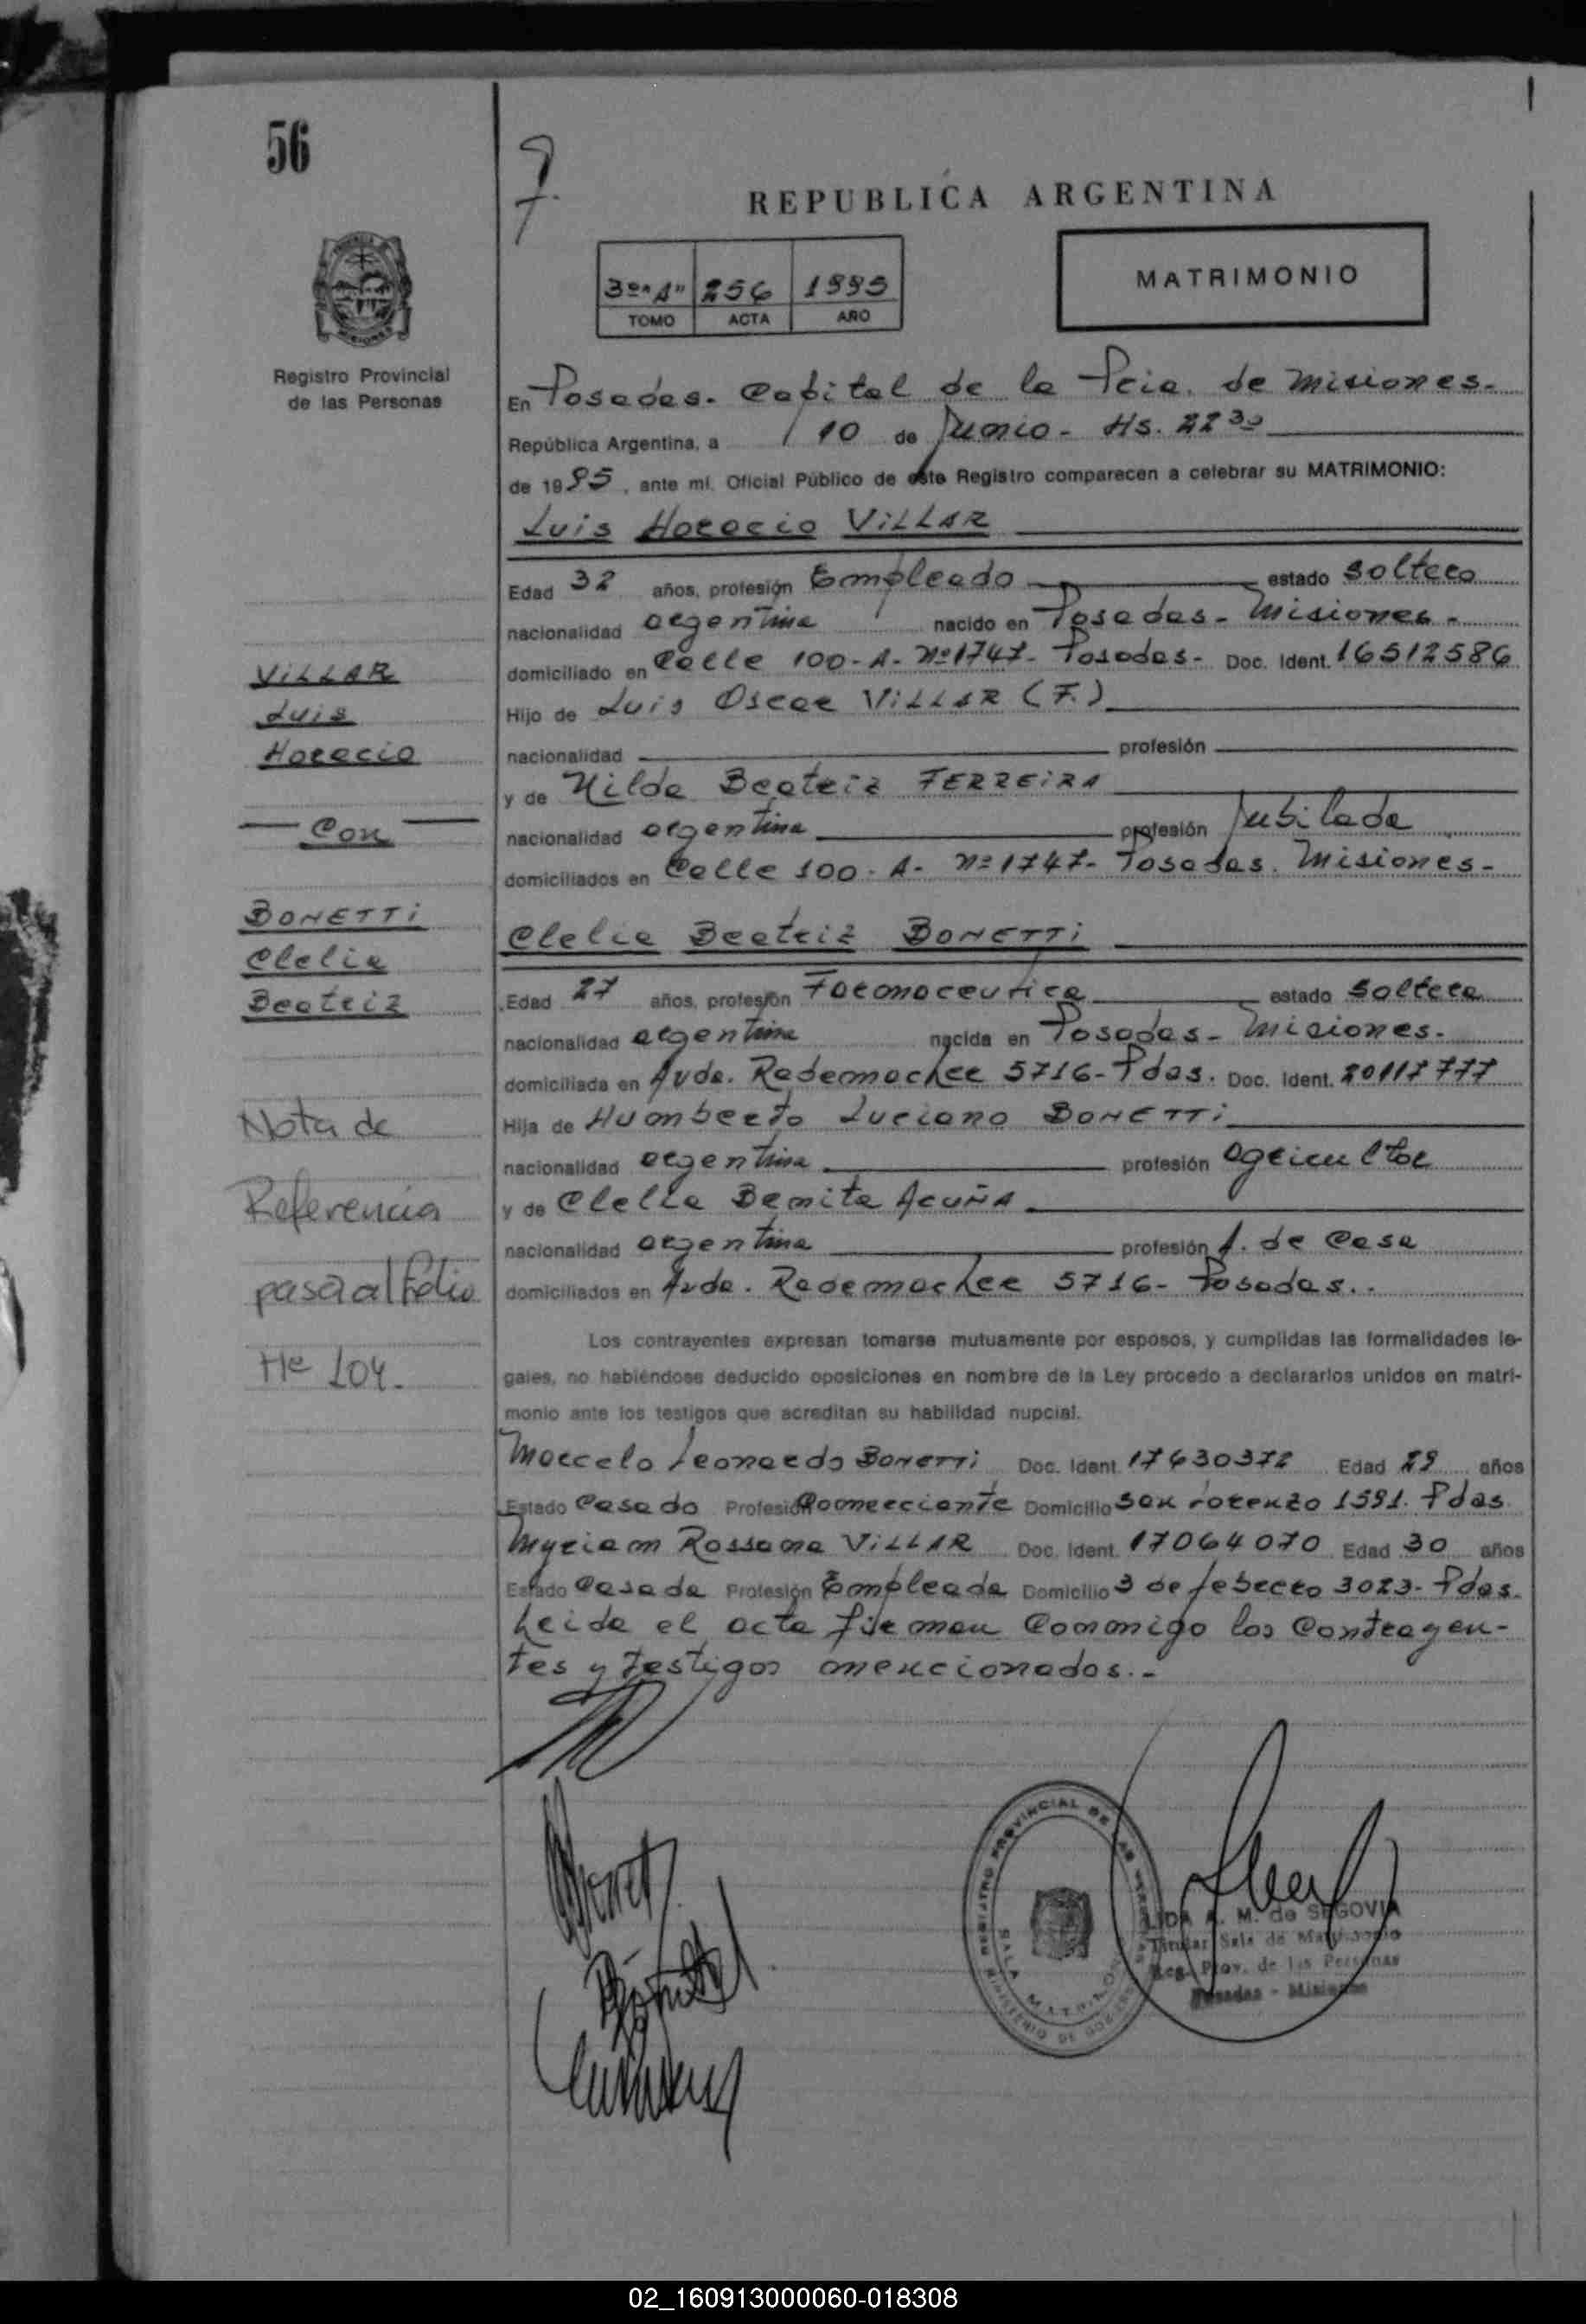 56
7.
REPUBLICA ARGENTINA
3º "A" 256 1995
TOMO ACTA AÑO
MATRIMONIO
Registro Provincial
de las Personas
En Posadas. Capital de la Pcia. de Misiones.
República Argentina, a 10 de Junio - Hs. 22 30
de 1995, ante mí, Oficial Público de este Registro comparecen a celebrar su MATRIMONIO:
Luis Horacio VILLAR
Edad 32 años, profesión Empleado estado soltero
nacionalidad argentina nacido en Posadas - Misiones -
domiciliado en Calle 100 - A - Nº 1747 - Posadas - Doc. Ident. 16512586
Hijo de Luis Oscar VILLAR (F.)
nacionalidad profesión
y de Hilda Beatriz FERREIRA
nacionalidad argentina profesión Jubilada
domiciliados en Calle 100 - A - Nº 1747 - Posadas. Misiones -
Clelia Beatriz BONETTI
Edad 27 años, profesión Farmaceutica estado soltera
nacionalidad argentina nacida en Posadas - Misiones.
domiciliada en Avda. Rademacher 5716 - Pdas. Doc. Ident. 20117777
Hija de Humberto Luciano BONETTI
nacionalidad argentina profesión agricultor
y de Clelia Benita ACUÑA
nacionalidad argentina profesión A. de Casa
domiciliados en Avda. Rademacher 5716 - Posadas..
Los contrayentes expresan tomarse mutuamente por esposos, y cumplidas las formalidades le-
gales, no habiéndose deducido oposiciones en nombre de la Ley procedo a declararlos unidos en matri-
monio ante los testigos que acreditan su habilidad nupcial.
Marcelo Leonardo BONETTI Doc. Ident. 17630372 Edad 29 años
Estado Casado Profesión Comerciante Domicilio San Lorenzo 1591. Pdas.
Myriam Rossana VILLAR Doc. Ident. 17064070 Edad 30 años
Estado Casada Profesión Empleada Domicilio 3 de febrero 3023 - Pdas.
Leida el acta firman conmigo los contrayen-
tes y testigos mencionados. -
VILLAR
Luis
Horacio
Con
BONETTI
Clelia
Beatriz
Nota de
Referencia
pasa al Folio
Nº 104.
REGISTRO PROVINCIAL DE LAS PERSONAS
MINISTERIO DE GOBIERNO
LIDA A. M. de SEGOVIA
Titular Sala de Matrimonio
Reg. Prov. de las Personas
Posadas - Misiones
02_160913000060-018308